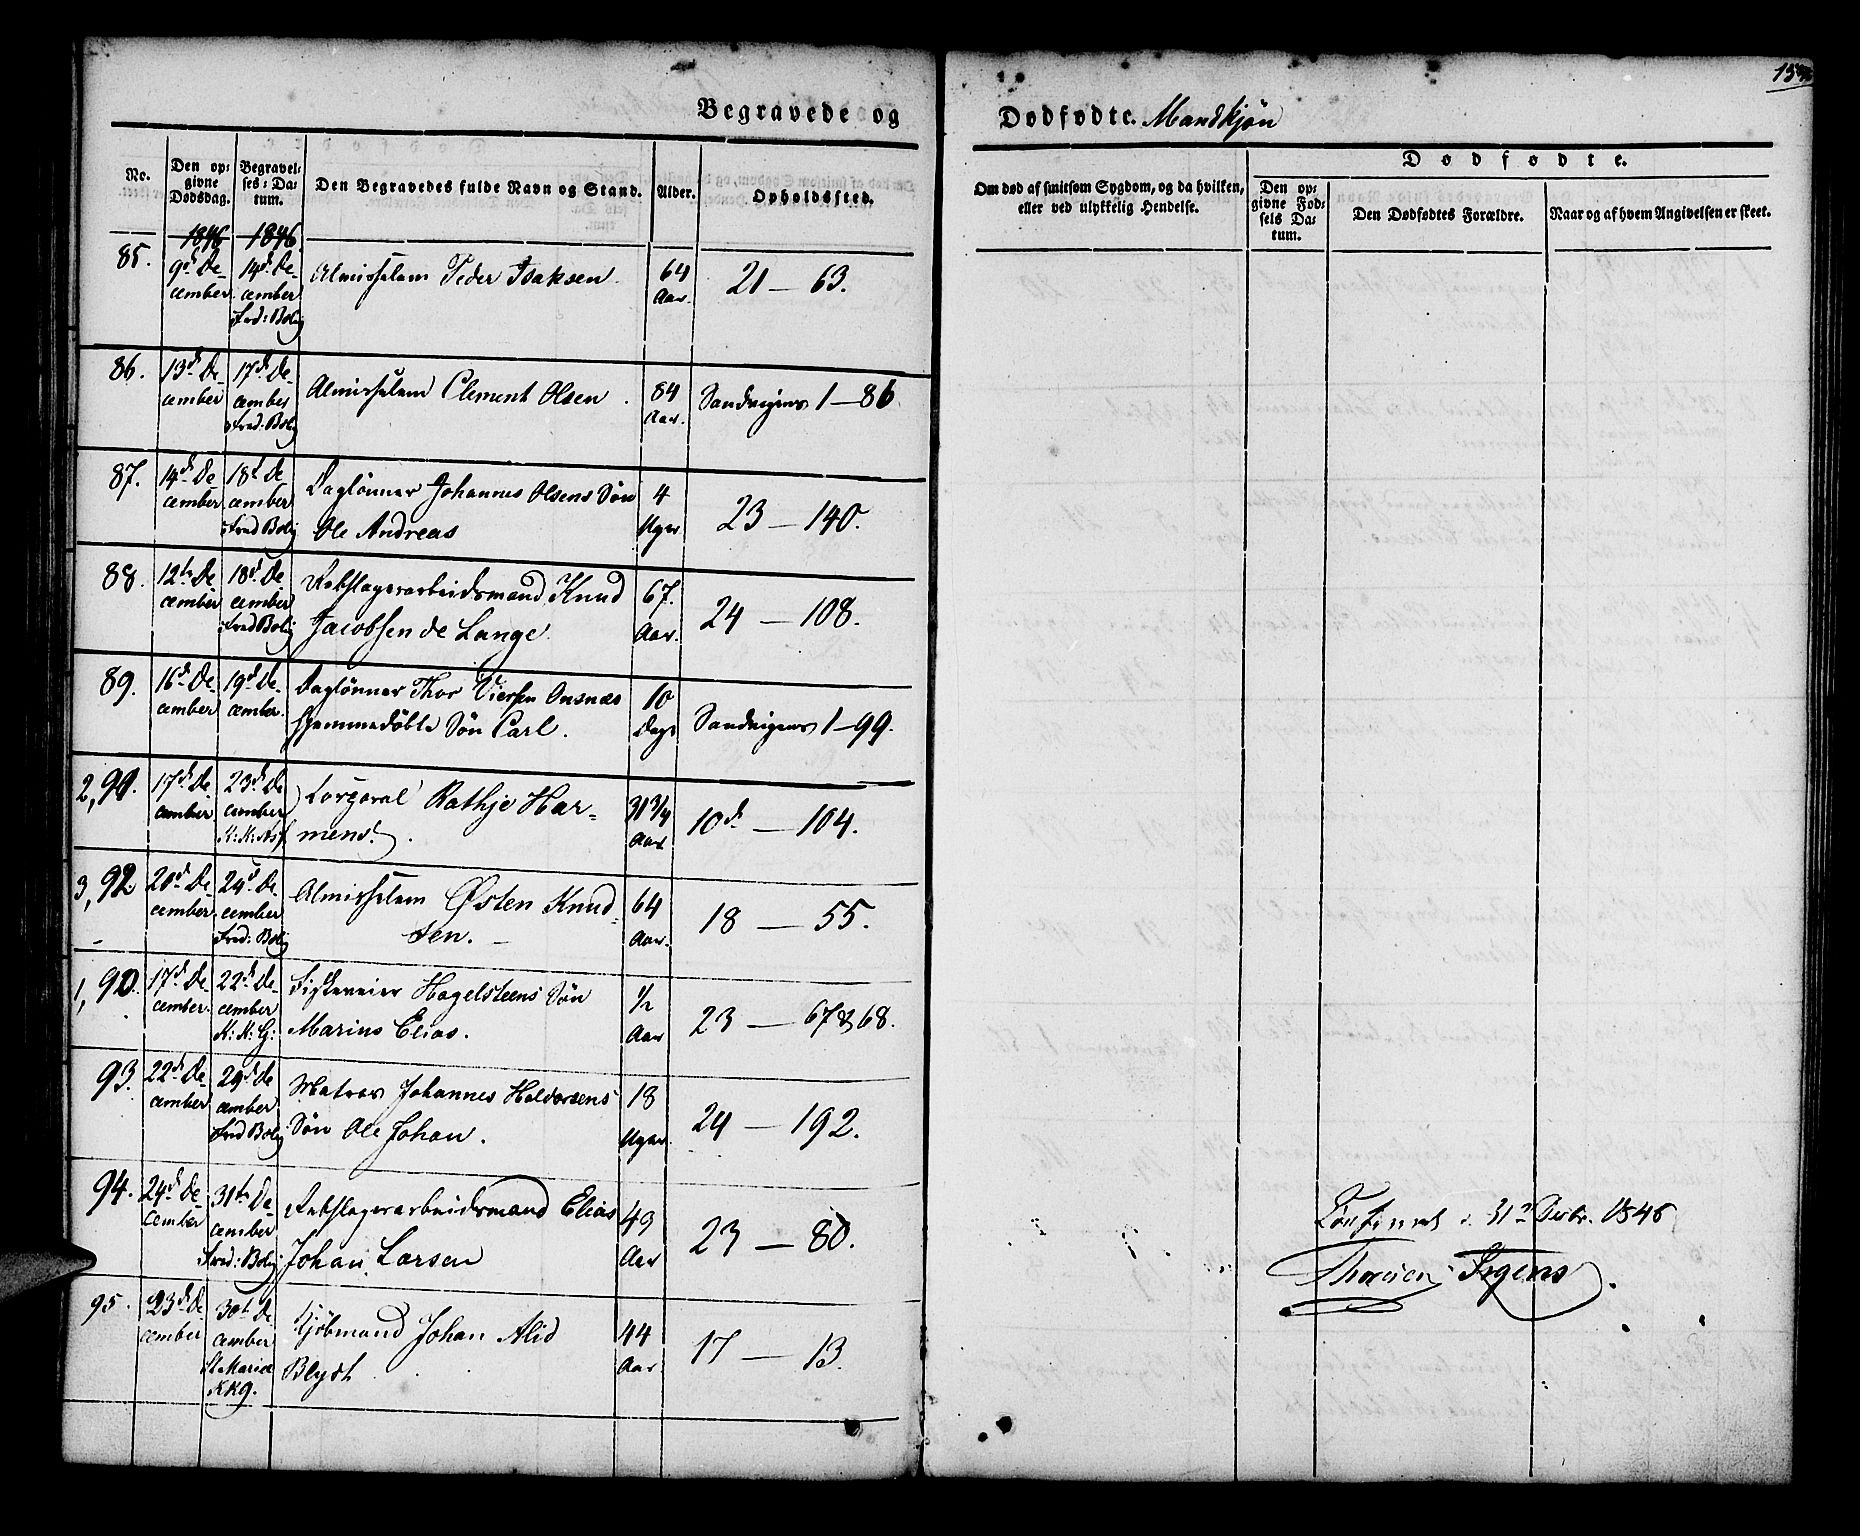 Begravede og
No.
Den op-
givne
Dødsdag.
Begravel-
ses-Da-
tum.
Den Begravedes fulde Navn og Stand.
Alder.
Opholdssted.
1846 1846
85.
9d De-
cember
14d De-
cember
Fred: Bolig
Almisselem Peder Isaksen
64
Aar.
21 — 63.
86.
13d De-
cember
17d De-
cember
Fred: Bolig
Almisselem Clement Olsen.
84
Aar.
Sandvigens 1—86
87.
14d De
cember
18d De
cember
Fred Bolig
Dagtønner Johannes Olsens Søn
Ole Andreas
4
Uger
23 — 140.
88.
12te De
cember
18d De
cember
Fred Bolig
Rebslagerarbeidsmand Knud
Jacobsen de Lange.
67.
Aar.
24 — 108.
89.
16d De-
cember
19d De-
cember.
Dagtønner Thor
hjemmedøbte Søn Carl.
10
Dage
Sandvigens 1—99.
2, 91.
17d De
cember
23d De
cember
K: K:
Rathje Har-
mens.
31 3/4
Aar
10d — 104.
3, 92
20d De
cember.
24d De-
cember
Fred: Bolig
Almisselem Østen Knud-
sen.
64
Aar.
18 — 55.
1, 90.
17d De-
cember.
22d De-
cember
K: K: G:
Hagelsteens Søn
Marius Elias.
1/2
Aar
23 — 67 & 68.
93.
22d De-
cember
29d De
cember
Fred Bolig
Matros Johannes Haldorsens
Søn Ole Johan.
18
Uger.
24 — 192.
94.
24d De-
cember
31te De-
cember
Fred: Bolig
Rebslagerarbeidsmand Elias
Johan Larsen
49
Aar
23 — 80.
95.
23d De
cember
30t De
cember
St Mariæ
KKg.
Kjøbmand Johan Alid
Blydt
44
Aar
17 — 13.
Dødfødte. Mandkjøn
Om død af smitsom Sygdom, og da hvilken,
eller ved ulykkelig Hendelse.
Dødfødte.
Den op-
givne Fød-
sels Da-
tum.
Den Dødfødtes Forældre.
Naar og af hvem Angivelsen er skeet.
31 Decbr. 1846
Irgens.